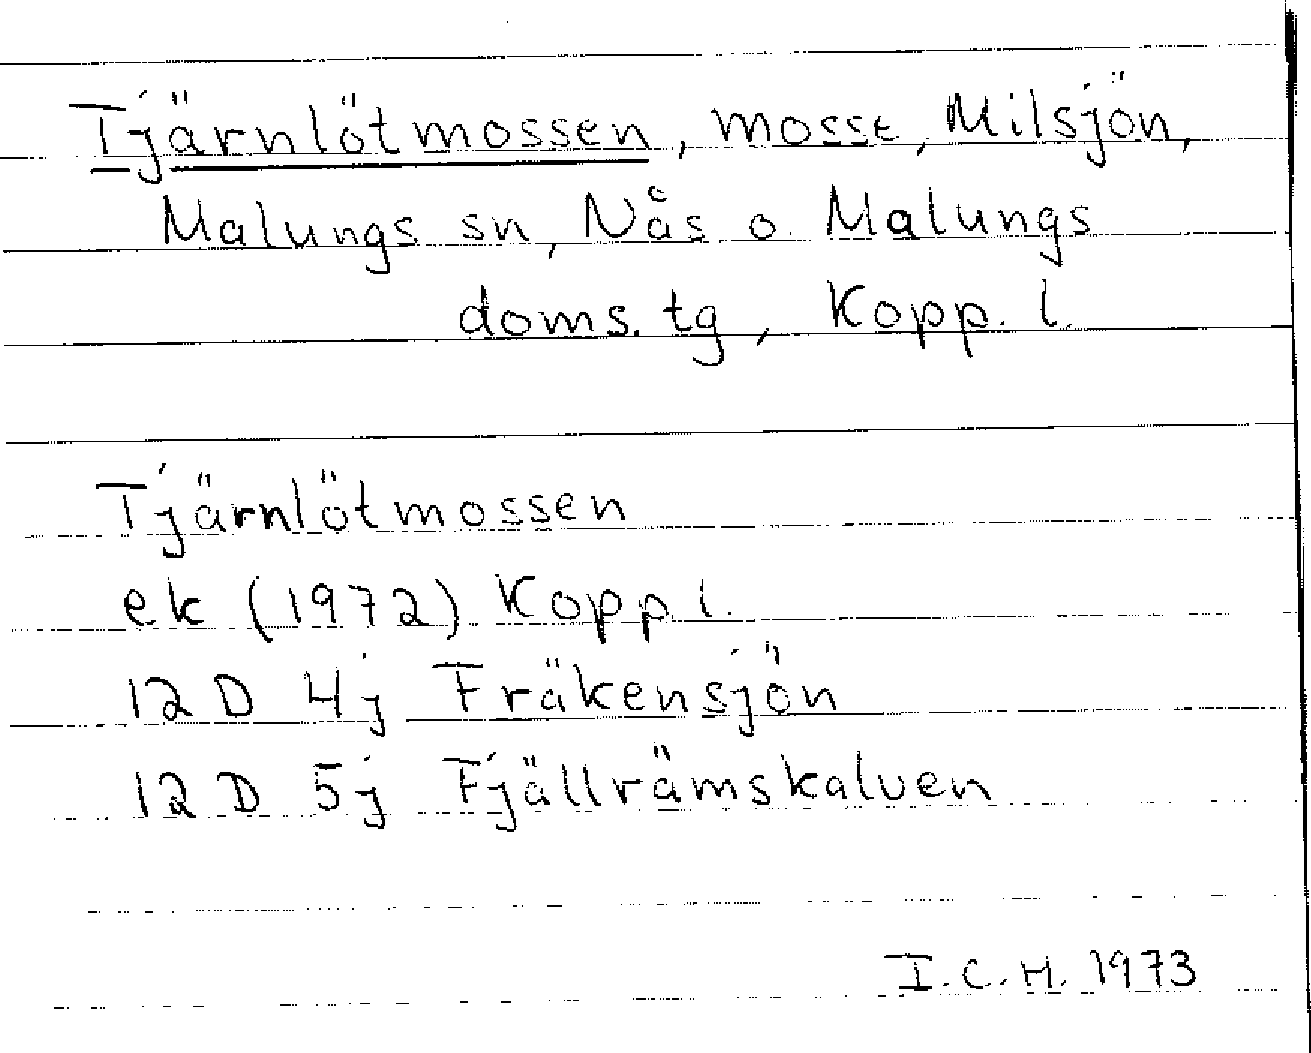 Tjärnlötmossen, mosse, Milsjön,
Malungs sn, Nås o. Malungs
doms. tg, Kopp. l.
Tjärnlötmossen
ek (1972) Kopp l.
12 D 4j Fräkensjön
12 D 5j Fjällrämskalven
I.C.H. 1973